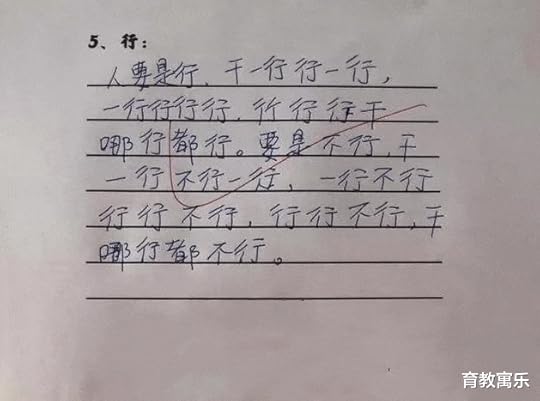 5、行：
人要是行、干一行行一行，
一行行行行，行行行干
哪行都行。要是不行，干
一行不行一行，一行不行
行行不行，行行不行，干
哪行都不行。
育教寓乐